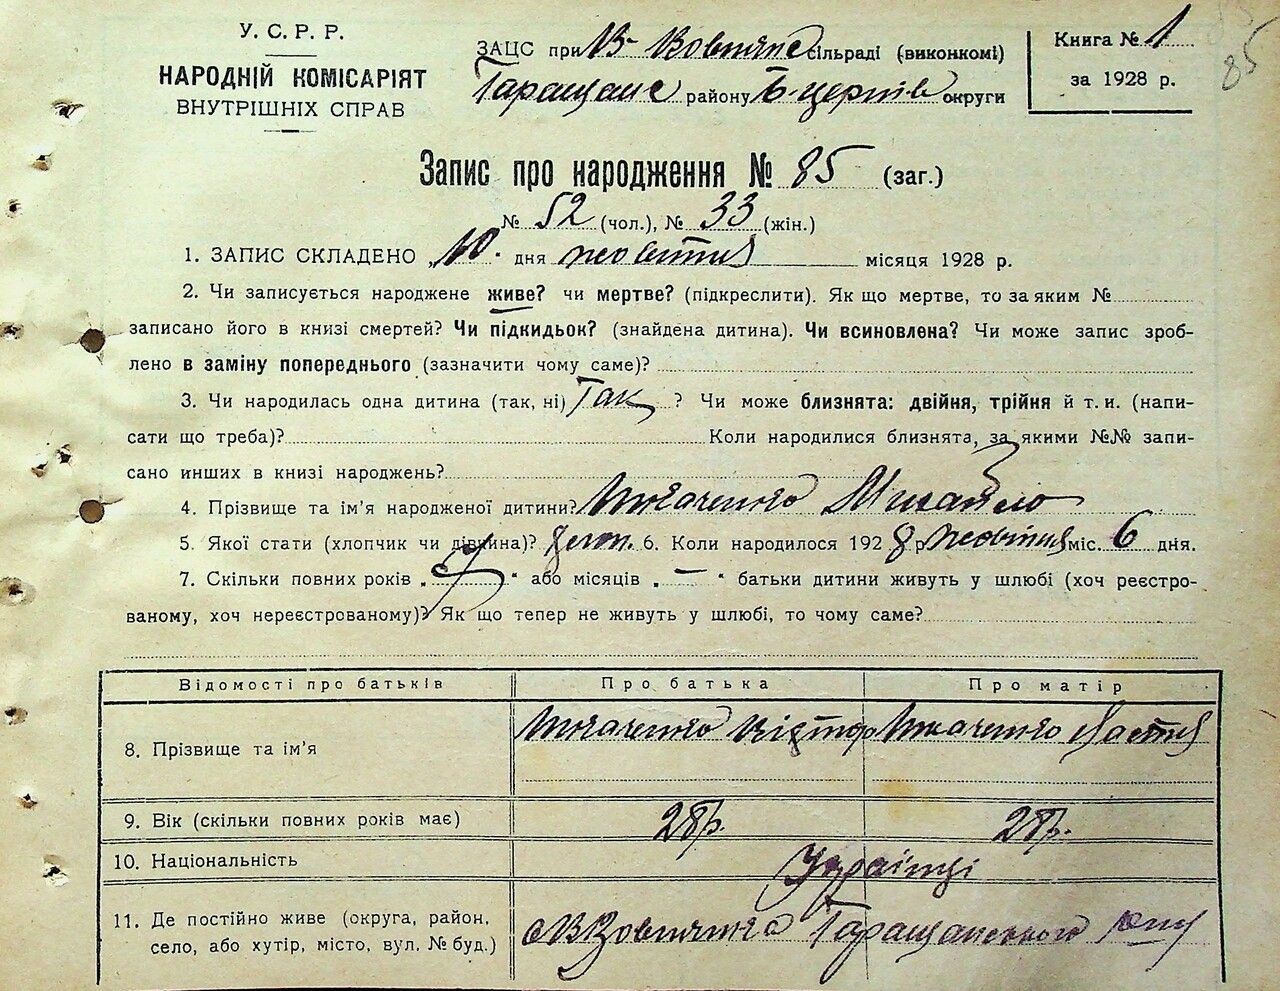 У. С. Р. Р.
НАРОДНІЙ КОМІСАРІЯТ
ВНУТРІШНІХ СПРАВ
ЗАЦС при В-Вовнянс сільраді (виконкомі)
Таращанс району Б-церків округи
Книга № 1
за 1928 р.
85
Запис про народження № 85 (заг.)
№ 52 (чол.), № 33 (жін.)
1. ЗАПИС СКЛАДЕНО „10" дня жовтня місяця 1928 р.
2. Чи записується народжене живе? чи мертве? (підкреслити). Як що мертве, то за яким №
записано його в книзі смертей? Чи підкидьок? (знайдена дитина). Чи всиновлена? Чи може запис зроб-
лено в заміну попереднього (зазначити чому саме)?
3. Чи народилась одна дитина (так, ні) Так ? Чи може близнята: двійня, трійня й т. и. (напи-
сати що треба)? Коли народилися близнята, за якими №№ запи-
сано инших в книзі народжень?
4. Прізвище та ім'я народженої дитини? Ткаченко Михайло
5. Якої стати (хлопчик чи дівчина)? 6. Коли народилося 1928 р жовтня міс. 6 дня.
7. Скільки повних років „ " або місяців „ — " батьки дитини живуть у шлюбі (хоч реєстро-
ваному, хоч нереєстрованому)? Як що тепер не живуть у шлюбі, то чому саме?
Відомості про батьків Про батька Про матір
8. Прізвище та ім'я Ткаченко Віктор Ткаченко Настя
9. Вік (скільки повних років має) 28р. 28р.
10. Національність Українці
11. Де постійно живе (округа, район,
село, або хутір, місто, вул. № буд.) с В Вовнянка Таращанського